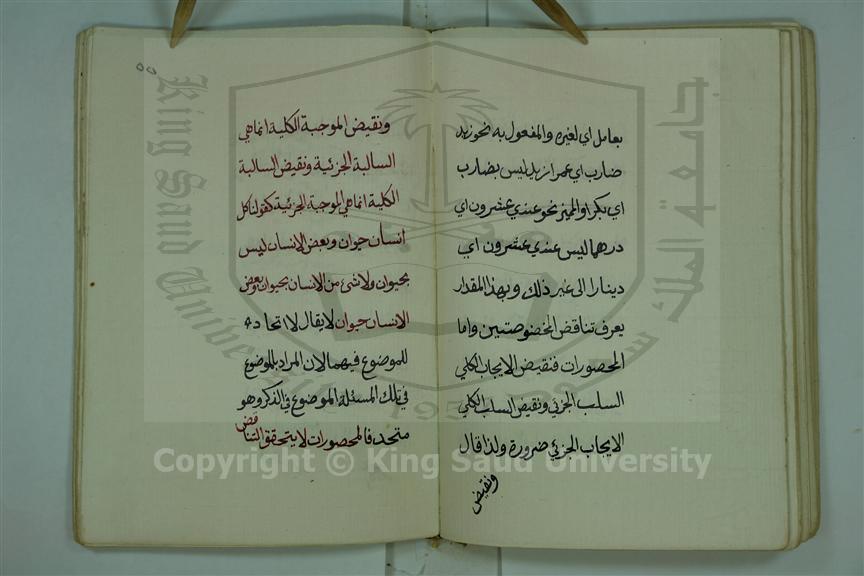 بعامل اي لغيره والمفعول به نحو زيد
ضارب اي عمرا زيد ليس بضارب
اي بكرا والمميز نحو عندي عشرون اي
درهما ليس عندي عشرون اي
دينارا الى غير ذلك وبهذا المقدار
يعرف تناقض المخصوصتين واما
المحصورات فنقيض الايجاب الكلي
السلب الجزئي ونقيض السلب الكلي
الايجاب الجزئي ضرورة ولذا قال
ونقيض
٥٥
ونقيض الموجبة الكلية انما هي
السالبة الجزئية ونقيض السالبة
الكلية انما هي الموجبة الجزئية كقولنا كل
انسان حيوان وبعض الانسان ليس
بحيوان ولا شئ من الانسان بحيوان وبعض
الانسان حيوان لا يقال لا اتحاد
للموضوع فيهما لان المراد بالموضوع
في تلك المسئلة الموضوع في الذكر وهو
متحد فالمحصورات لا يتحقق التناقض
جامعة الملك سعود
King Saud University
1957
Copyright © King Saud University